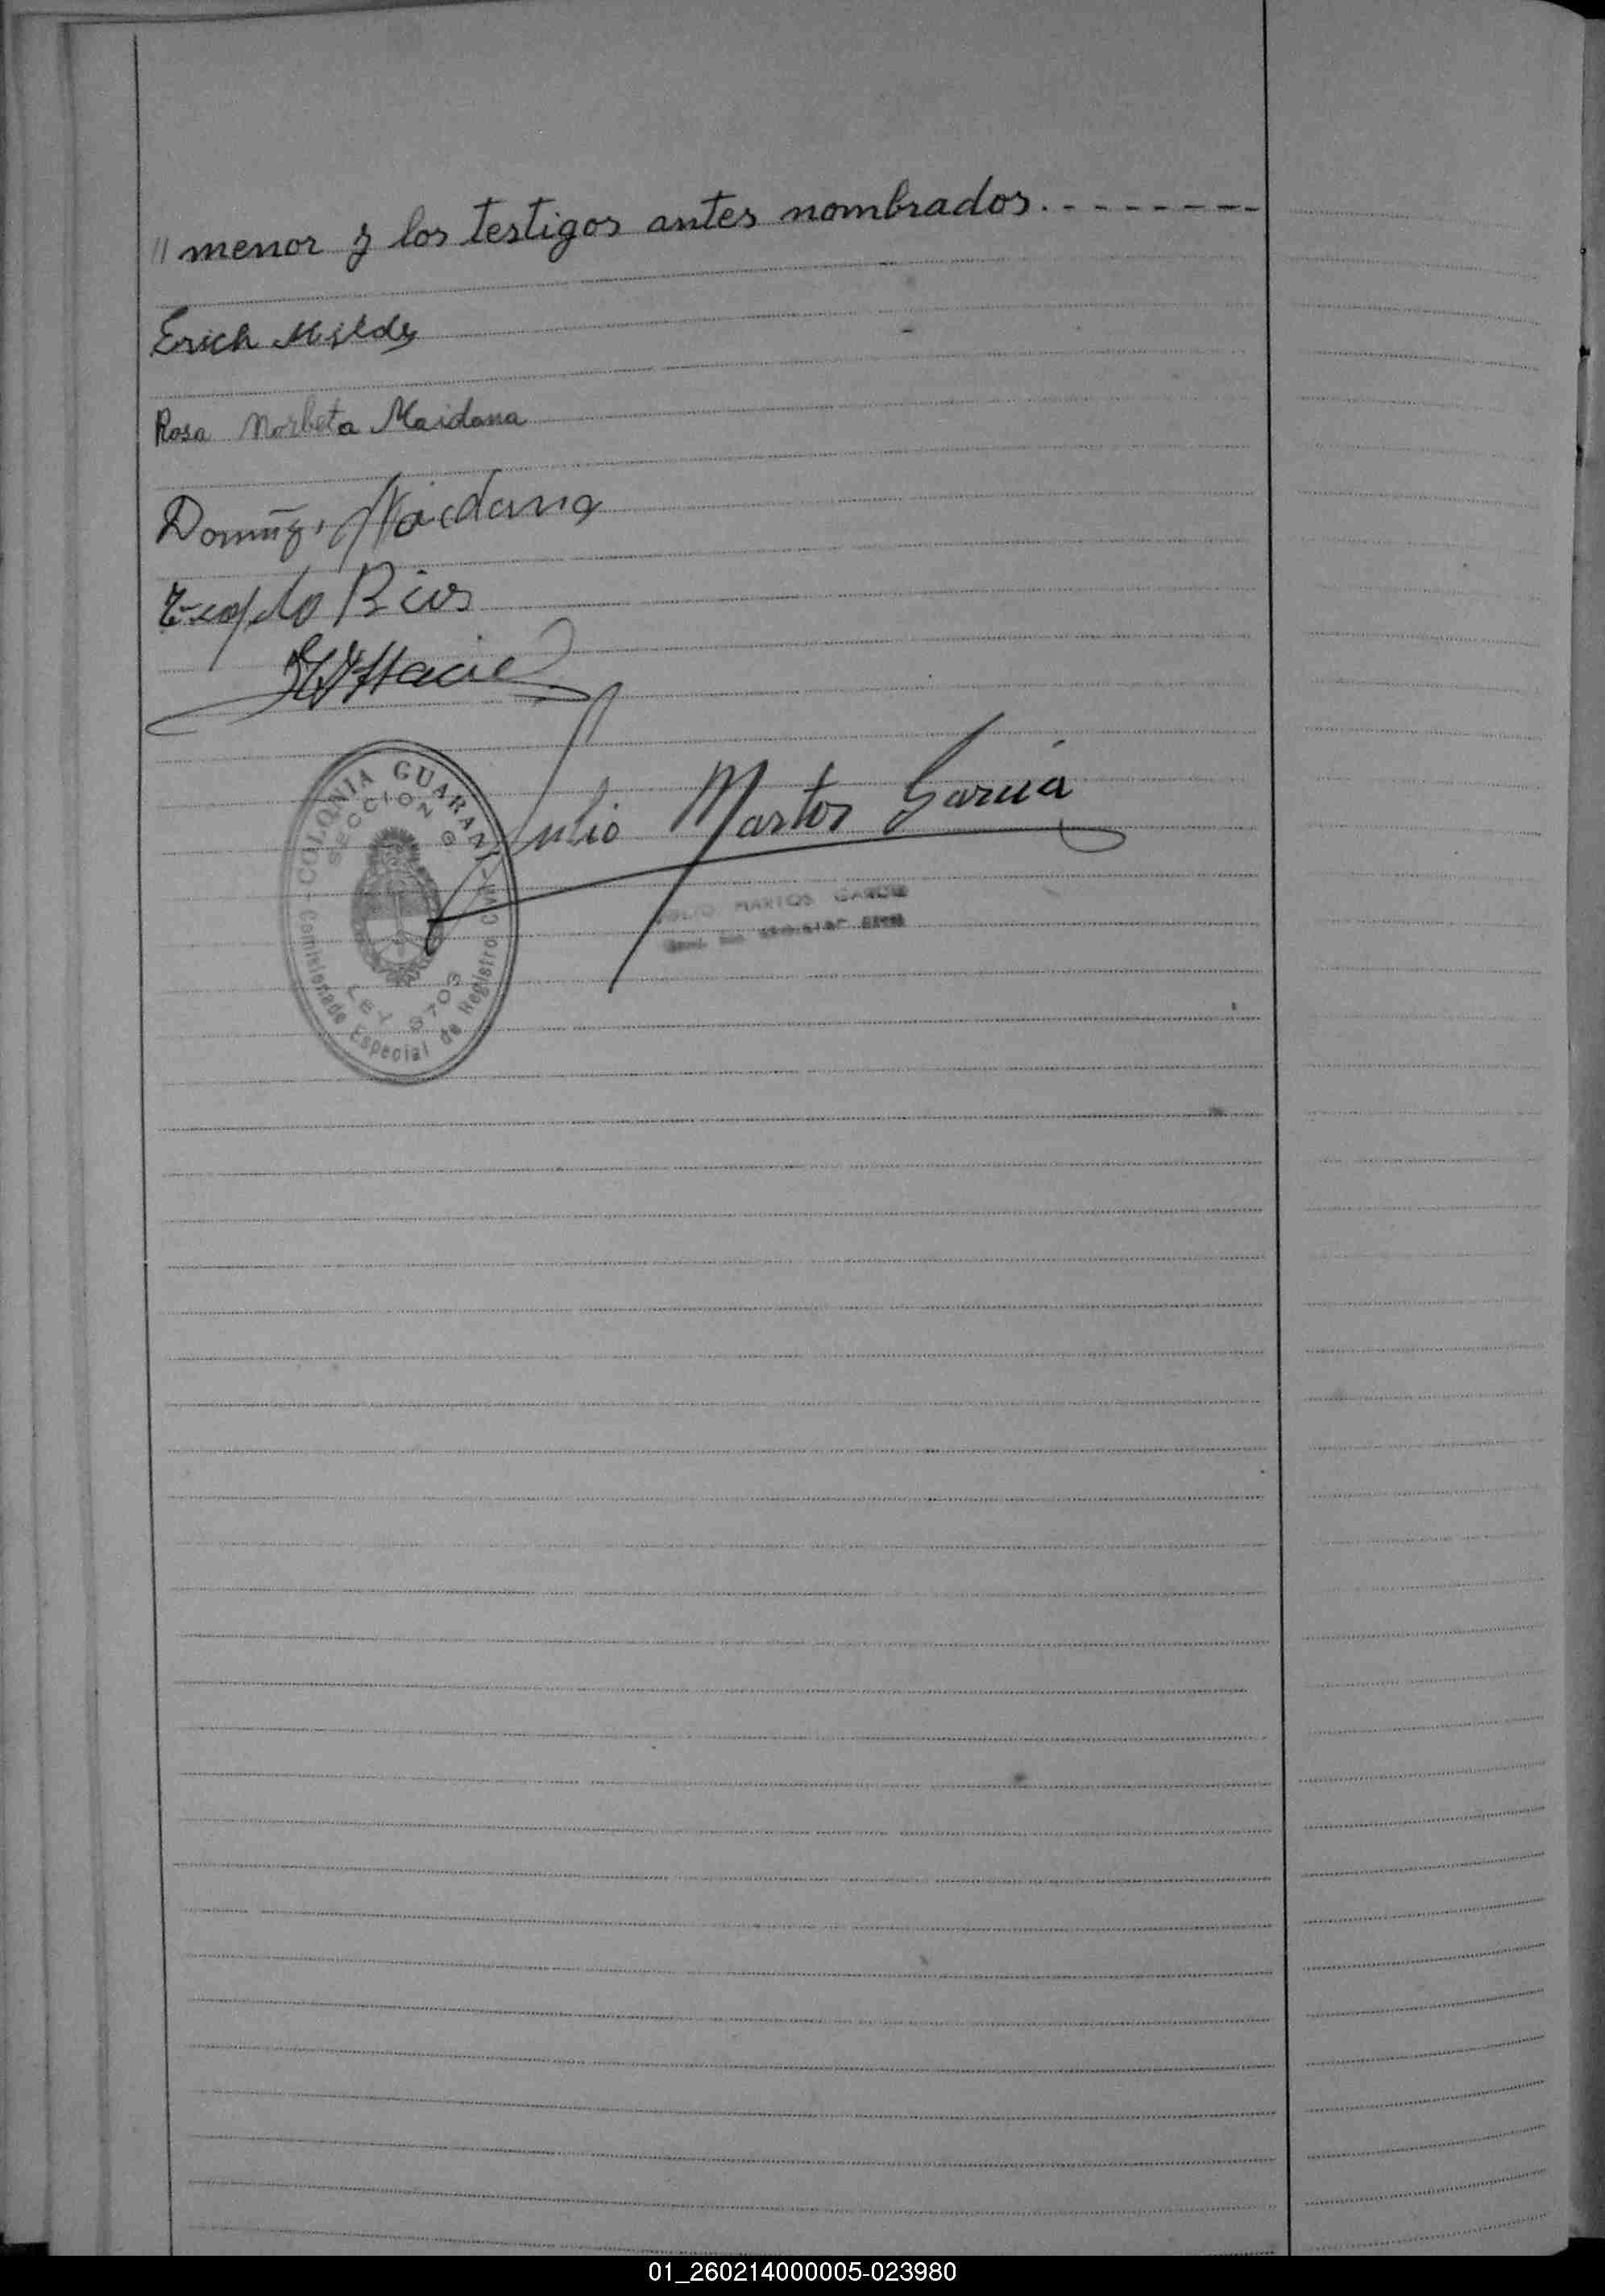 " menor y los testigos antes nombrados.--------
Erich
Rosa Norbeta Maidana
Maidana
Rios
Julio Martos Garcia
COLONIA GUARANI
SECCION G
LEY 3703
Comisionado Especial de Registro Civil
JULIO MARTOS GARCIA
01_260214000005-023980